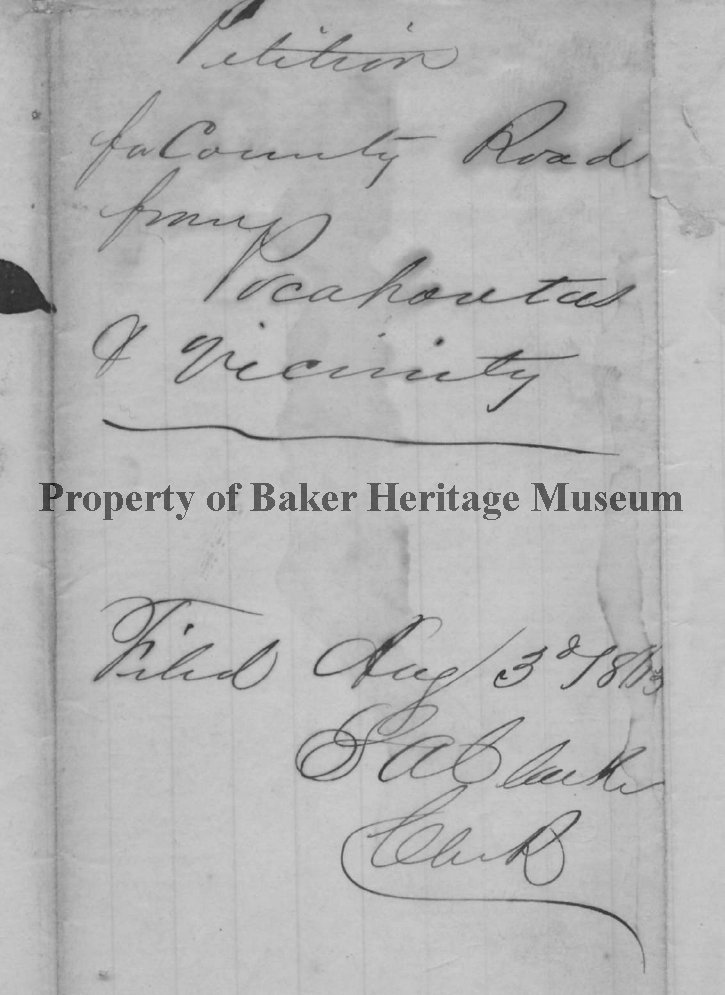 Petition
for County Road
from
Pocahontas
& Vicinity
Property of Baker Heritage Museum
Filed Aug 3d 1863
S A Clarke
Clerk